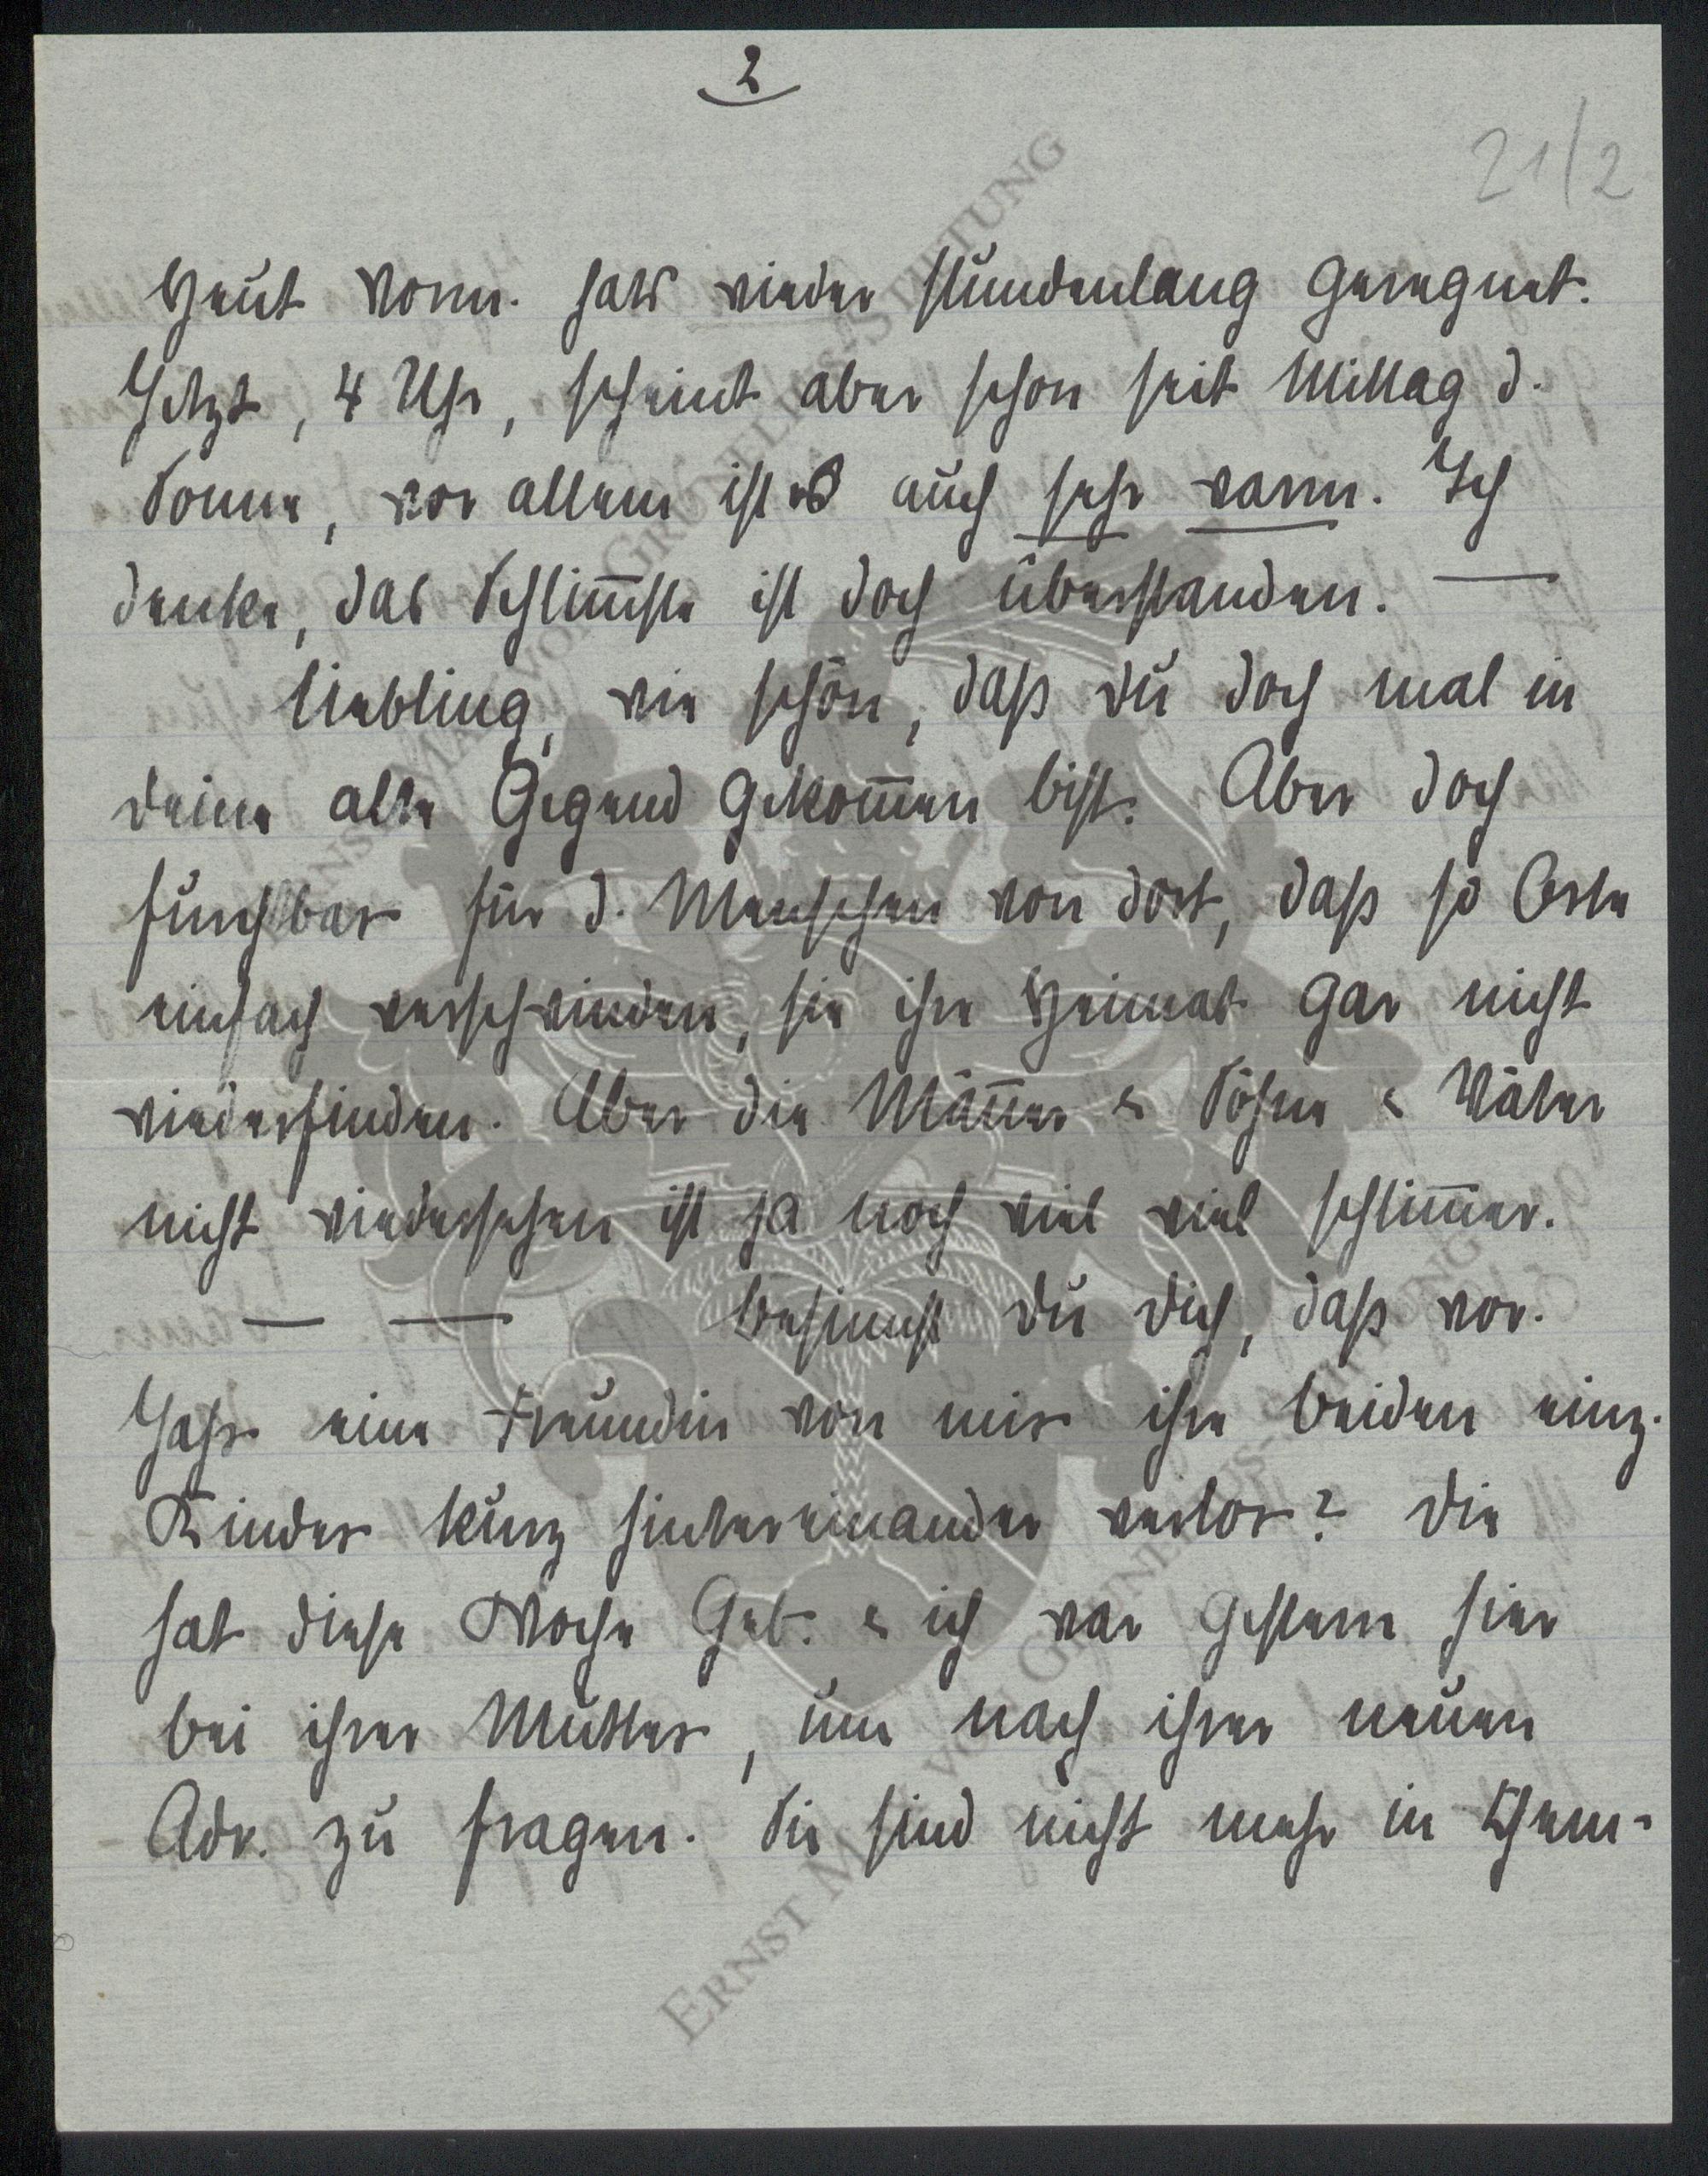 2
21/2
Heut vorm. hats wieder stundenlang geregnet.
Jetzt, 4 Uhr, scheint aber schon seit Mittag d.
Sonne, vor allem ist es auch sehr warm. Ich
denke, das Schlim̅ste ist doch überstanden. —
Liebling, wie schön, daß Du doch mal in
Deine alte Gegend gekom̅en bist. Aber doch
furchbar für d. Menschen von dort, daß so Orte
einfach verschwinden, sie ihre Heimat gar nicht
wiederfinden. Aber die Män̅er & Söhne & Väter
nicht wiedersehen ist ja noch viel viel schlim̅er.
— — Besinnst Du Dich, daß vor.
Jahr eine Freundin von mir ihre beiden einz.
Kinder kurz hintereinander verlor? Die
hat diese Woche Geb. & ich war gestern hier
bei ihrer Mutter, um nach ihrer neuen
Adr. zu fragen. Sie sind nicht mehr in Chem-
ERNST MAX VON GRUNELIUS-STIFTUNG
ERNST MAX VON GRUNELIUS-STIFTUNG